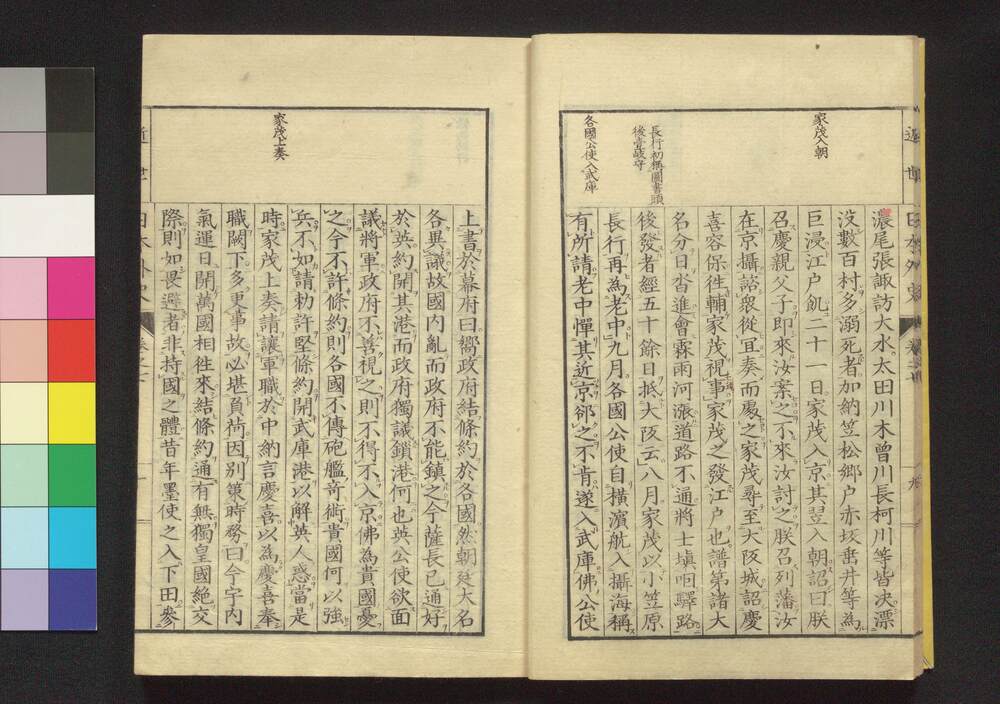 家茂入朝
長行初稱圖書頭
後壹岐守
各國公使入武庫
濃尾張諏訪大水太田川木曾川長柯川等皆決漂
沒數百村多溺死者加納笠松鄉戸赤坂垂井等為
巨浸江戸飢二十一日家茂入京其翌入朝詔曰朕
召慶親父子即來汝案之不來汝討之朕召列藩汝
在京攝諮衆從宜奏而處之家茂尋至大阪城詔慶
喜容保徃輔家茂視事家茂之發江戸也譜第諸大
名分日沓進會霖雨河漲道路不通將士塡咽驛路
後發者經五十餘日抵大阪云八月家茂以小笠原
長行再為老中九月各國公使自橫濱航入攝海稱
有所請老中憚其近京郤之不肯遂入武庫佛公使
家茂上奏
上書於幕府曰嚮政府結條約於各國然朝廷大名
各異議故國内亂而政府不能鎮之今薩長已通好
於英約開其港而政府獨議鎖港何也英公使欲面
議將軍政府不善視之則不得不入京佛為貴國憂
之今不許條約則各國不傳砲艦竒術貴國何以強
兵不如請勅許堅條約開武庫港以解英人惑當是
時家茂上奏請讓軍職於中納言慶喜以為慶喜奉
職闕下多更事故必堪負荷因別策時務曰今宇内
氣運日開萬國相徃來結條約通有無獨皇國絶交
際則如畏避者非持國之體昔年墨使之入下田參